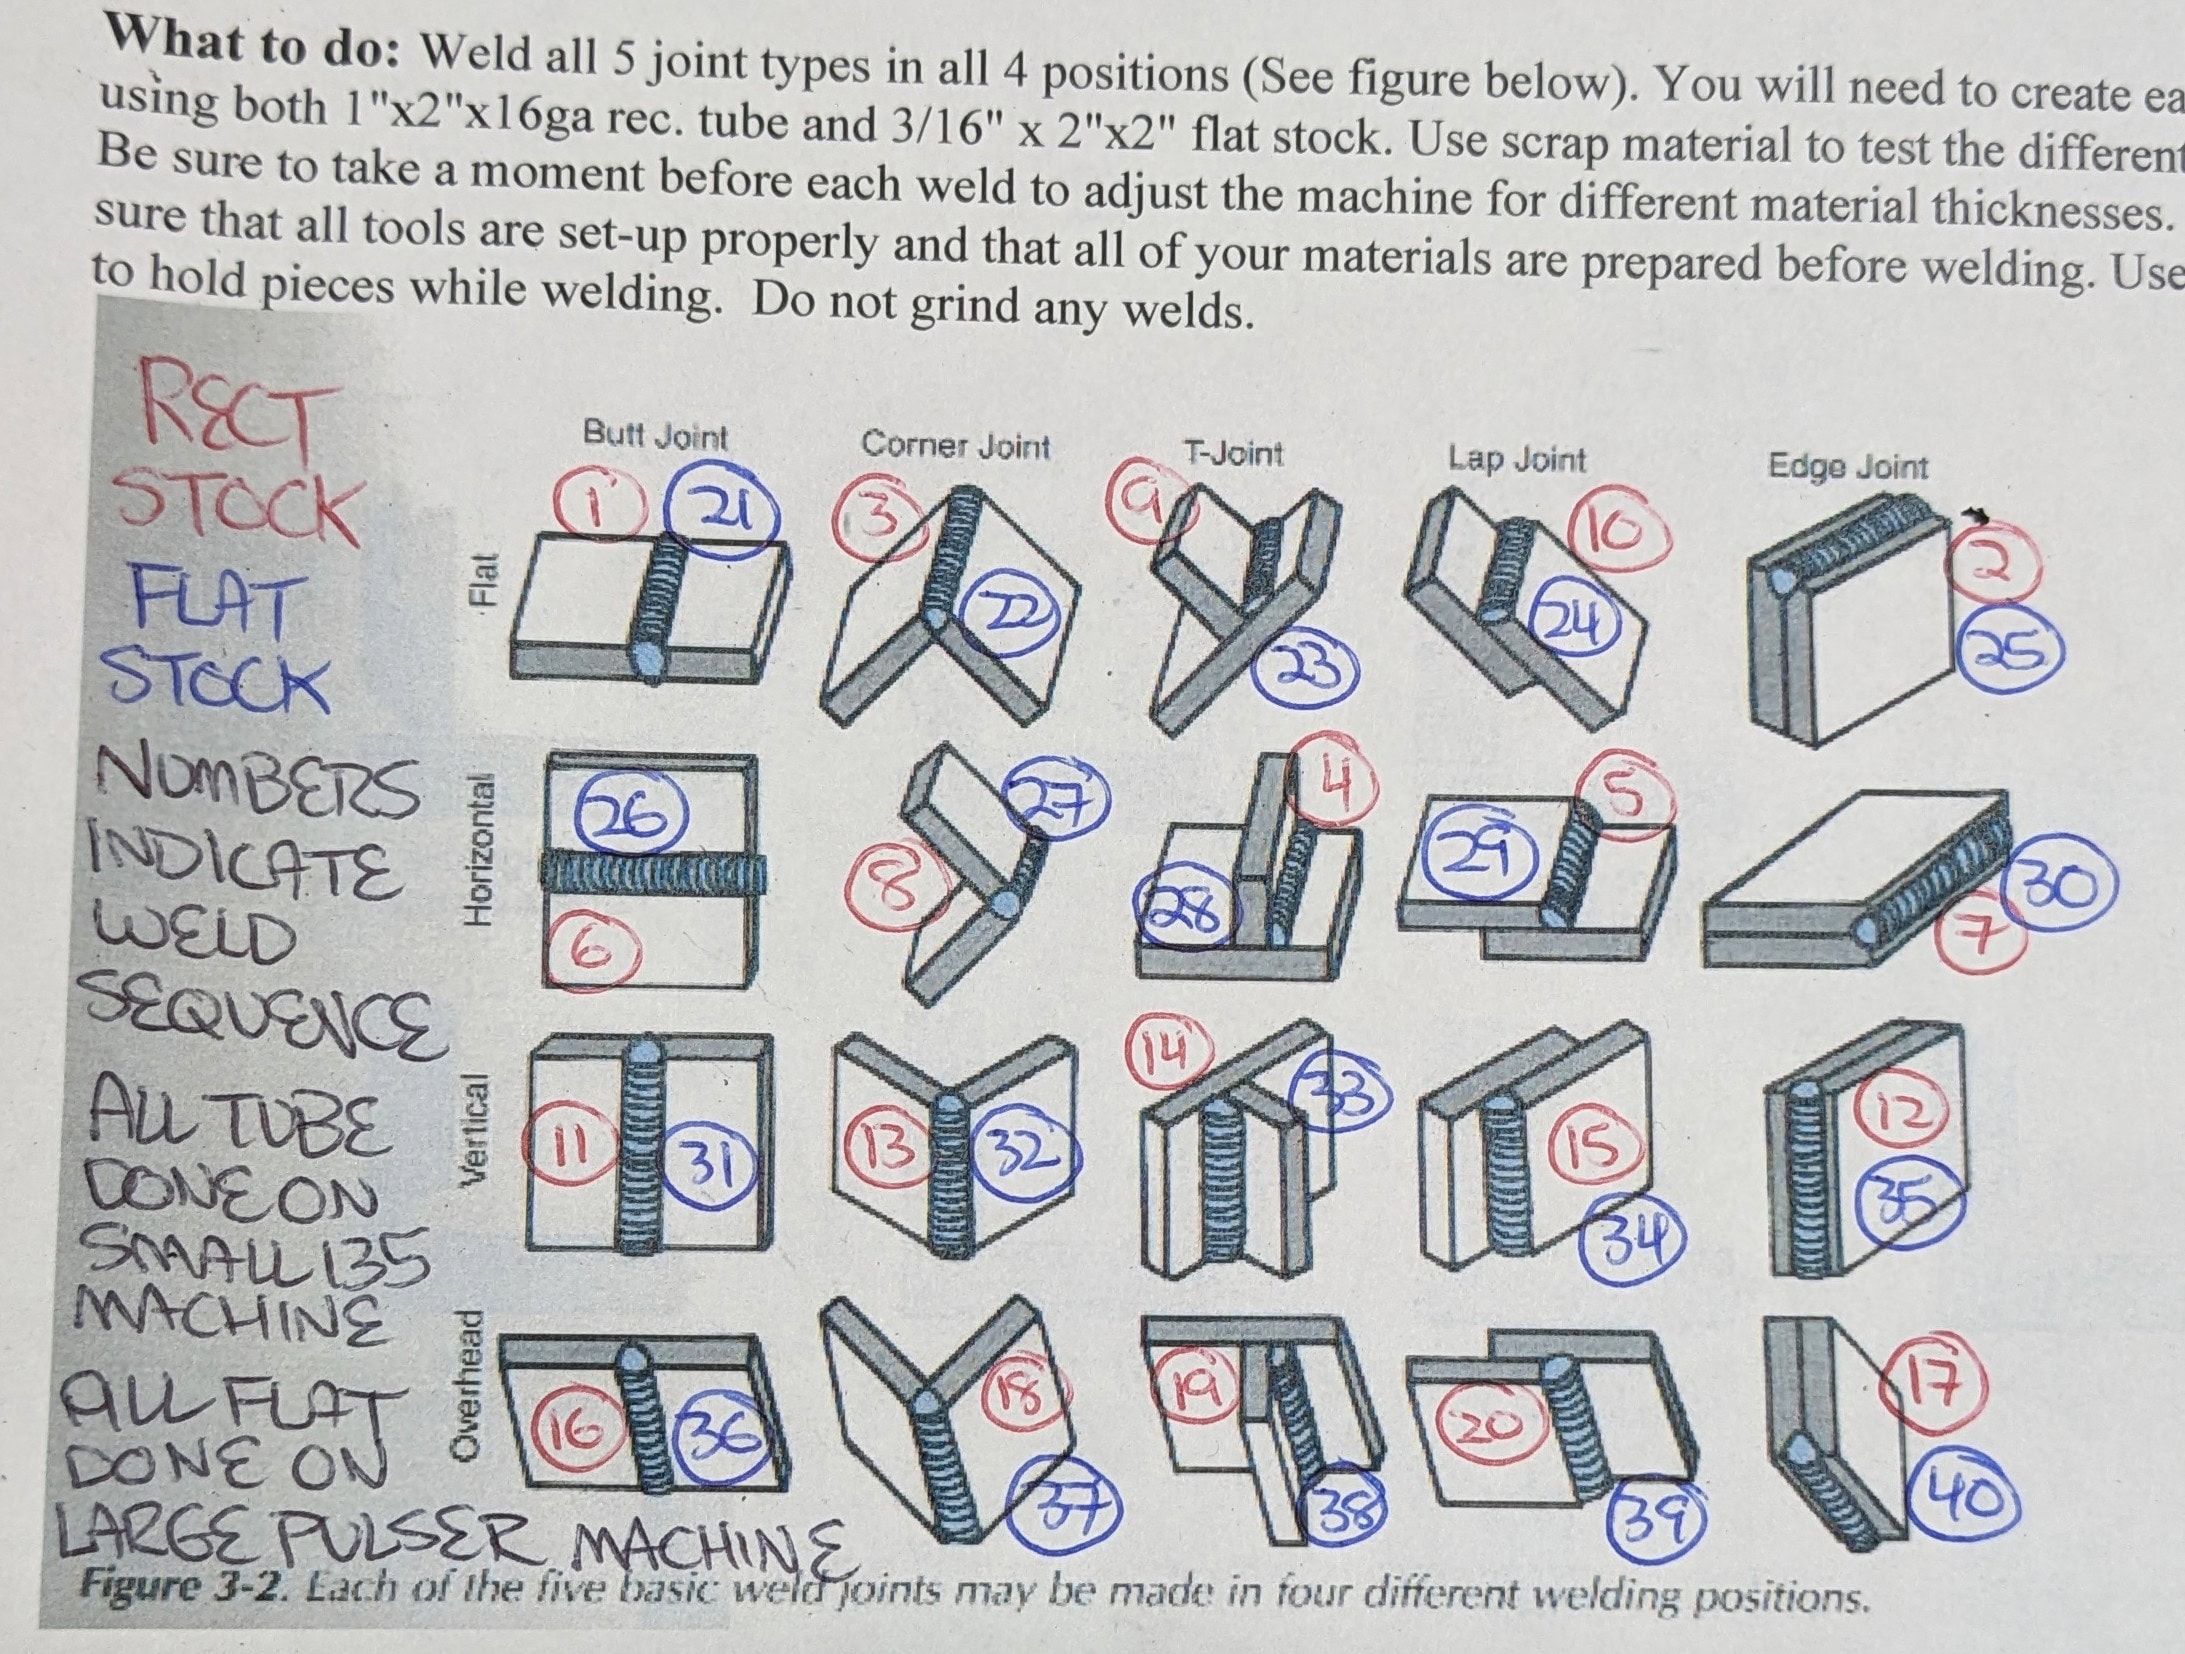 What to do: Weld all 5 joint types in all 4 positions (See figure below). You will need to create ea
using both 1"x2"x16ga rec. tube and 3/16" x 2"x2" flat stock. Use scrap material to test the different
Be sure to take a moment before each weld to adjust the machine for different material thicknesses.
sure that all tools are set-up properly and that all of your materials are prepared before welding. Use
to hold pieces while welding. Do not grind any welds.
RECT
STOCK
FLAT
STOCK
NUMBERS
INDICATE
WELD
SEQUENCE
ALL TUBE
DONE ON
SMALL 135
MACHINE
ALL FLAT
DONE ON
LARGE PULSER MACHINE
Butt Joint Corner Joint T-Joint Lap Joint Edge Joint
Flat
1 21 3 22 9 23 10 24 2 25
Horizontal
26 6 27 8 4 28 5 29 30 7
Vertical
11 31 13 32 14 33 15 34 12 35
Overhead
16 36 18 37 19 38 20 39 17 40
Figure 3-2. Each of the five basic weld joints may be made in four different welding positions.